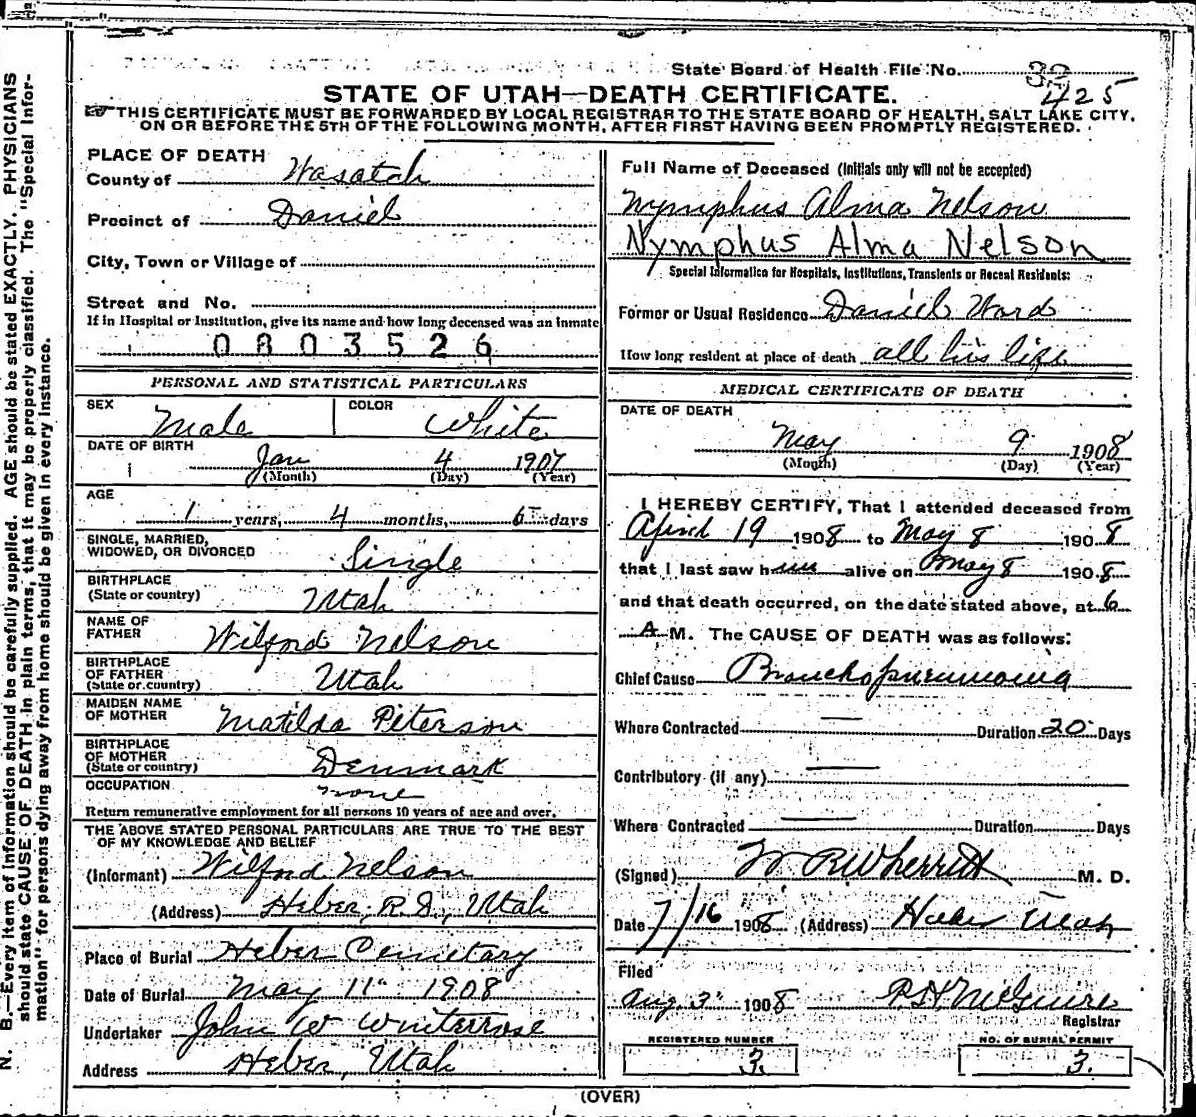 State Board of Health File No. 32
425
STATE OF UTAH—DEATH CERTIFICATE.
THIS CERTIFICATE MUST BE FORWARDED BY LOCAL REGISTRAR TO THE STATE BOARD OF HEALTH, SALT LAKE CITY,
ON OR BEFORE THE 5TH OF THE FOLLOWING MONTH, AFTER FIRST HAVING BEEN PROMPTLY REGISTERED.
N. B.—Every item of information should be carefully supplied. AGE should be stated EXACTLY. PHYSICIANS
should state CAUSE OF DEATH in plain terms, that it may be properly classified. The "Special Infor-
mation" for persons dying away from home should be given in every instance.
PLACE OF DEATH
County of Wasatch
Precinct of Daniel
City, Town or Village of
Street and No.
If in Hospital or Institution, give its name and how long deceased was an inmate
0803526
PERSONAL AND STATISTICAL PARTICULARS
SEX Male COLOR White
DATE OF BIRTH
Jan 4 1907
(Month) (Day) (Year)
AGE
1 years, 4 months, 5 days
SINGLE, MARRIED,
WIDOWED, OR DIVORCED Single
BIRTHPLACE
(State or country) Utah
NAME OF
FATHER Wilford Nelson
BIRTHPLACE
OF FATHER
(State or country) Utah
MAIDEN NAME
OF MOTHER Matilda Peterson
BIRTHPLACE
OF MOTHER
(State or country) Denmark
OCCUPATION none
Return remunerative employment for all persons 10 years of age and over.
THE ABOVE STATED PERSONAL PARTICULARS ARE TRUE TO THE BEST
OF MY KNOWLEDGE AND BELIEF
(Informant) Wilford Nelson
(Address) Heber, R.D., Utah
Place of Burial Heber Cemetary
Date of Burial May 11" 1908
Undertaker John W Winterrose
Address Heber, Utah
Full Name of Deceased (Initials only will not be accepted)
Nymphus Alma Nelson
Nymphus Alma Nelson
Special Information for Hospitals, Institutions, Transients or Recent Residents:
Former or Usual Residence Daniel Ward
How long resident at place of death all his life
MEDICAL CERTIFICATE OF DEATH
DATE OF DEATH
May 9 1908
(Month) (Day) (Year)
I HEREBY CERTIFY, That I attended deceased from
April 19 1908 to May 8 1908
that I last saw him alive on May 8 1908
and that death occurred, on the date stated above, at 6
A M. The CAUSE OF DEATH was as follows:
Chief Cause Bronchopneumonia
Where Contracted — Duration 20 Days
Contributory (if any) —
Where Contracted — Duration Days
(Signed) W R Wherritt M. D.
Date 7/16 1908 (Address) Heber Utah
Filed
Aug 3" 1908 R H McGuire
Registrar
REGISTERED NUMBER
3.
NO. OF BURIAL PERMIT
3.
(OVER)